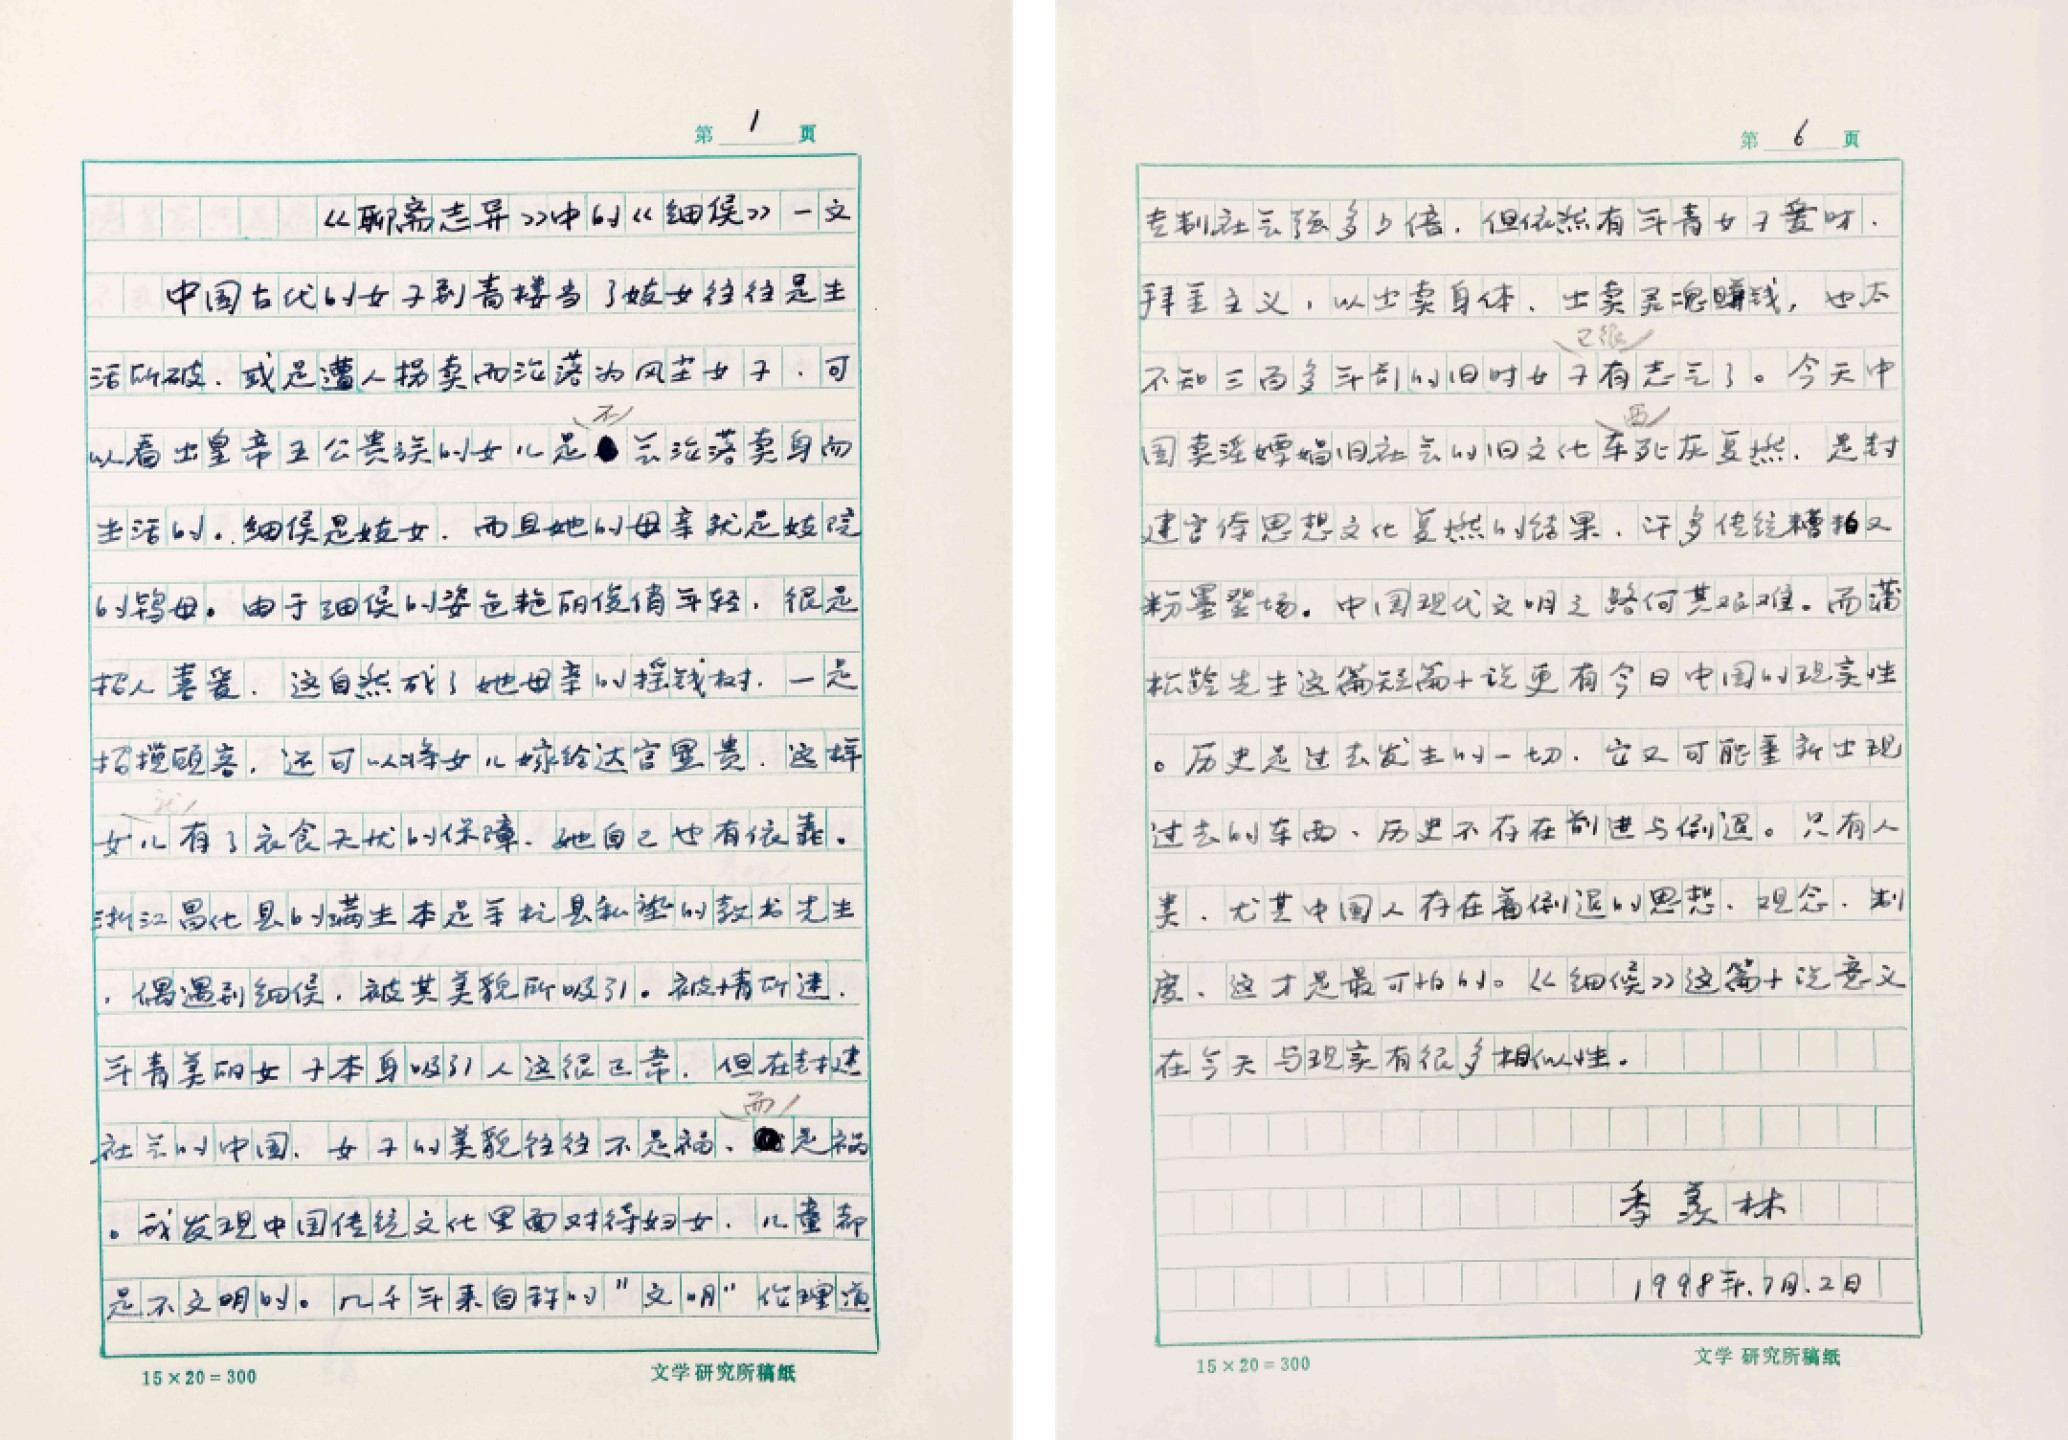 第 1 页
《聊斋志异》中的《细侯》一文
中国古代的女子到青楼当了妓女往往是生
活所破，或是遭人拐卖而沦落为风尘女子，可
不
以看出皇帝王公贵族的女儿是会沦落卖身而
生活的。细侯是妓女，而且她的母亲就是妓院
的鸨母。由于细侯的姿色艳丽俊俏年轻，很是
招人喜爱，这自然成了她母亲的摇钱树，一是
招揽顾客，还可以将女儿嫁给达官显贵，这样
就
女儿有了衣食无忧的保障，她自己也有依靠。
浙江昌化县的满生本是余杭县私塾的教书先生
，偶遇到细侯，被其美貌所吸引。被情所迷，
年青美丽女子本身吸引人这很正常，但在封建
而
社会的中国，女子的美貌往往不是福，是祸
。我发现中国传统文化里面对待妇女、儿童都
是不文明的。几千年来自称的"文明"伦理道
15×20=300
文学研究所稿纸
第 6 页
专制社会强多少倍，但依然有年青女子爱财，
拜金主义，以出卖身体、出卖灵魂赚钱，也太
已很
不知三百多年前的旧时女子有志气了。今天中
西
国卖淫嫖娼旧社会的旧文化东死灰复燃，是封
建宫侍思想文化复燃的结果，许多传统糟粕又
粉墨登场。中国现代文明之路何其艰难。而蒲
松龄先生这篇短篇小说更有今日中国的现实性
。历史是过去发生的一切，它又可能重新出现
过去的东西，历史不存在前进与倒退。只有人
类，尤其中国人存在着倒退的思想、观念、制
度，这才是最可怕的。《细侯》这篇小说意义
在今天与现实有很多相似性。
季羡林
1998年.7月.2日
15×20=300
文学研究所稿纸